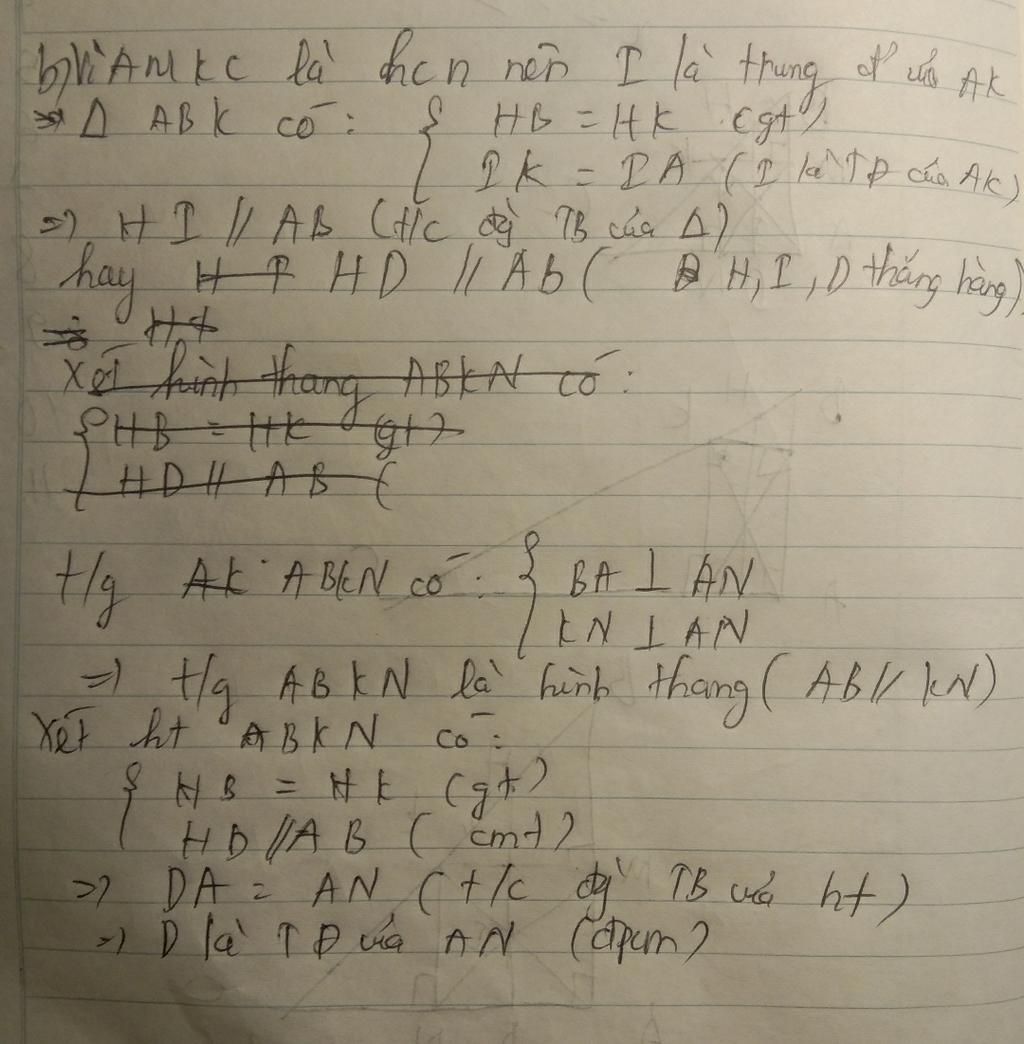 b) Vì AMKC là hcn nên I là trung đ' của AK
=> Δ ABK có : { HB = HK (gt)
IK = IA ( I là TĐ của AK)
=> HI // AB (t/c đg` TB của Δ)
hay H I HD // AB ( H, I, D thẳng hàng)
=> HI
Xét hình thang ABKN có :
{ HB = HK (gt)
HD // AB (
t/g AK ABKN có : { BA ⊥ AN
KN ⊥ AN
=> t/g ABKN là hình thang ( AB // KN)
Xét ht ABKN có :
{ HB = HK (gt)
HD // AB ( cmt)
=> DA = AN ( t/c đg` TB của ht )
=> D là TĐ của AN (đpcm)